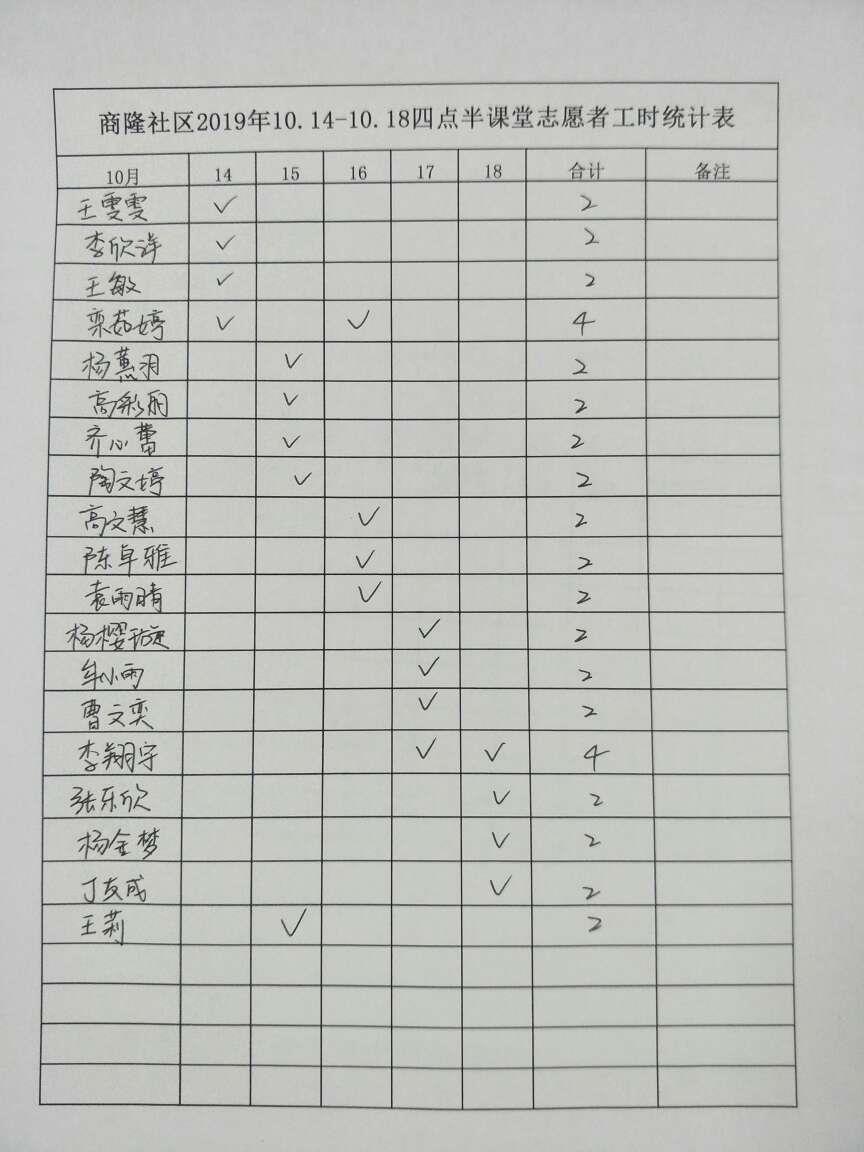 商隆社区2019年10.14-10.18四点半课堂志愿者工时统计表
10月 14 15 16 17 18 合计 备注
王雯雯 ✓ 2
李欣洋 ✓ 2
王敏 ✓ 2
栾茹婷 ✓ ✓ 4
杨蕙羽 ✓ 2
高彩丽 ✓ 2
齐心蕾 ✓ 2
陶文婷 ✓ 2
高文慧 ✓ 2
陈卓雅 ✓ 2
袁雨晴 ✓ 2
杨樱璇 ✓ 2
牟小雨 ✓ 2
曹文奕 ✓ 2
李翔宇 ✓ ✓ 4
张乐欣 ✓ 2
杨金梦 ✓ 2
丁友成 ✓ 2
王莉 ✓ 2